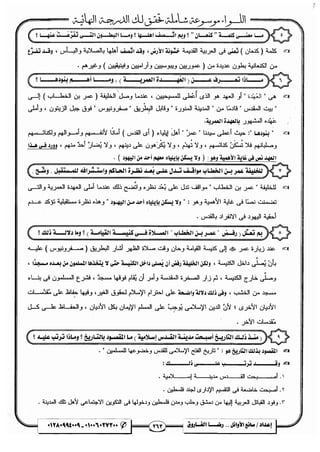 اللـواء .. موسوعة شاملة تحقق لك الدرجة النهائية
ما معنى كلمة " كنعان " ؟ وبم اتصف أهلها ؟ وما البطون التى تفرعت منها ؟
كلمة ( كنعان ) تعنى فى العربية القديمة خشونة الأرض ، وقد اتصف أهلها بالصلابة والبأس ، وقد تفرع
من الكنعانية بطون عديدة من ( صوريين ويبوسيين وآراميين وفينيقيين ) وغيرهم .
ماذا تعرف عن ( العهدة العمرية ) ؟ وما أهم بنودها ؟
هى " العهدة " أو العهد هو الذى أعطى للمسيحيين ، عندما وصل الخليفة ( عمر بن الخطاب ) إلى
" بيت المقدس " قادمًا من " المدينة المنورة " وقابل البطريق " صفرونيوس " فوق جبل الزيتون ، وأملى
عهده المشهور بالعهدة العمرية.
" بنودها " : حيث أعطى سيدنا " عمر " أهل إيلياء ( أى القدس ) أمانًا لأنفسهم وأموالهم وكنائسهم
وصلبانهم فلا تسكن كنائسهم ، ولا تهدم ، ولا يكرهون على دينهم ، ولا يضار أحد منهم ، وورد فى هذا
العهد نص فى غاية الأهمية وهو : ( ولا يسكن بإيلياء معهم أحد من اليهود ) .
للخليفة عمر بن الخطاب مواقف تدل على بعد نظرة الحاكم واستشرافه للمستقبل . وضح
الخليفة " عمر بن الخطاب " مواقف تدل على بعد نظره واتضح ذلك عندما أملى العهدة العمرية والتى
تضمنت نصًا فى غاية الأهمية وهو : " ولا يسكن بإيلياء أحد من اليهود " وهذه نظرة مستقبلية تؤكد عدم
أحقية اليهود فى الانفراد بالقدس .
بم تعلل : رفض " عمر بن الخطاب " الصلاة فى كنيسة القيامة ؟ وما دلالة ذلك ؟
عند زيارة عمر إلى كنيسة القيامة وحان وقت صلاة الظهر أشار البطريق ( صفرونيوس ) عليه
بأن يصلى داخل الكنيسة ، ولكن الخليفة رفض أن يصلى داخل الكنيسة حتى لا يتخذها المسلمون من بعده مسجدًا ،
وصلى خارج الكنيسة ، ثم زار الصخرة المقدسة وأمر أن يقام فوقها مسجد ، فشرع المسلمون فى بناء
مسجد من الخشب ، وفى ذلك دلالة واضحة على احترام الإسلام لحقوق الغير، وفيها حفاظ على مقدسات
الأديان الأخرى ؛ لأن الدين الإسلامى يوجب على المسلم الإيمان بكل الأديان ، والحفاظ على كل
مقدسات الآخر .
( منذ ذلك التاريخ أصبحت مدينة القدس إسلامية ) ما المقصود بالتاريخ ؟ وماذا ترتب عليه ؟
المقصود بذلك التاريخ هو : " تاريخ الفتح الإسلامى للقدس وخضوعها للمسلمين " .
وقد ترتب على ذلك :
١. أصبحت القدس مدينة إسلامية .
٢. أصبحت خاضعة فى التقسيم الإدارى لجند فلسطين .
٣. وفود القبائل العربية إليها من دمشق وحلب ومدن فلسطين ودخولها فى التكوين الاجتماعى لأهل تلك المدينة .
إعداد / صانع الأوائل .. رضا الفاروق
٢٦٢